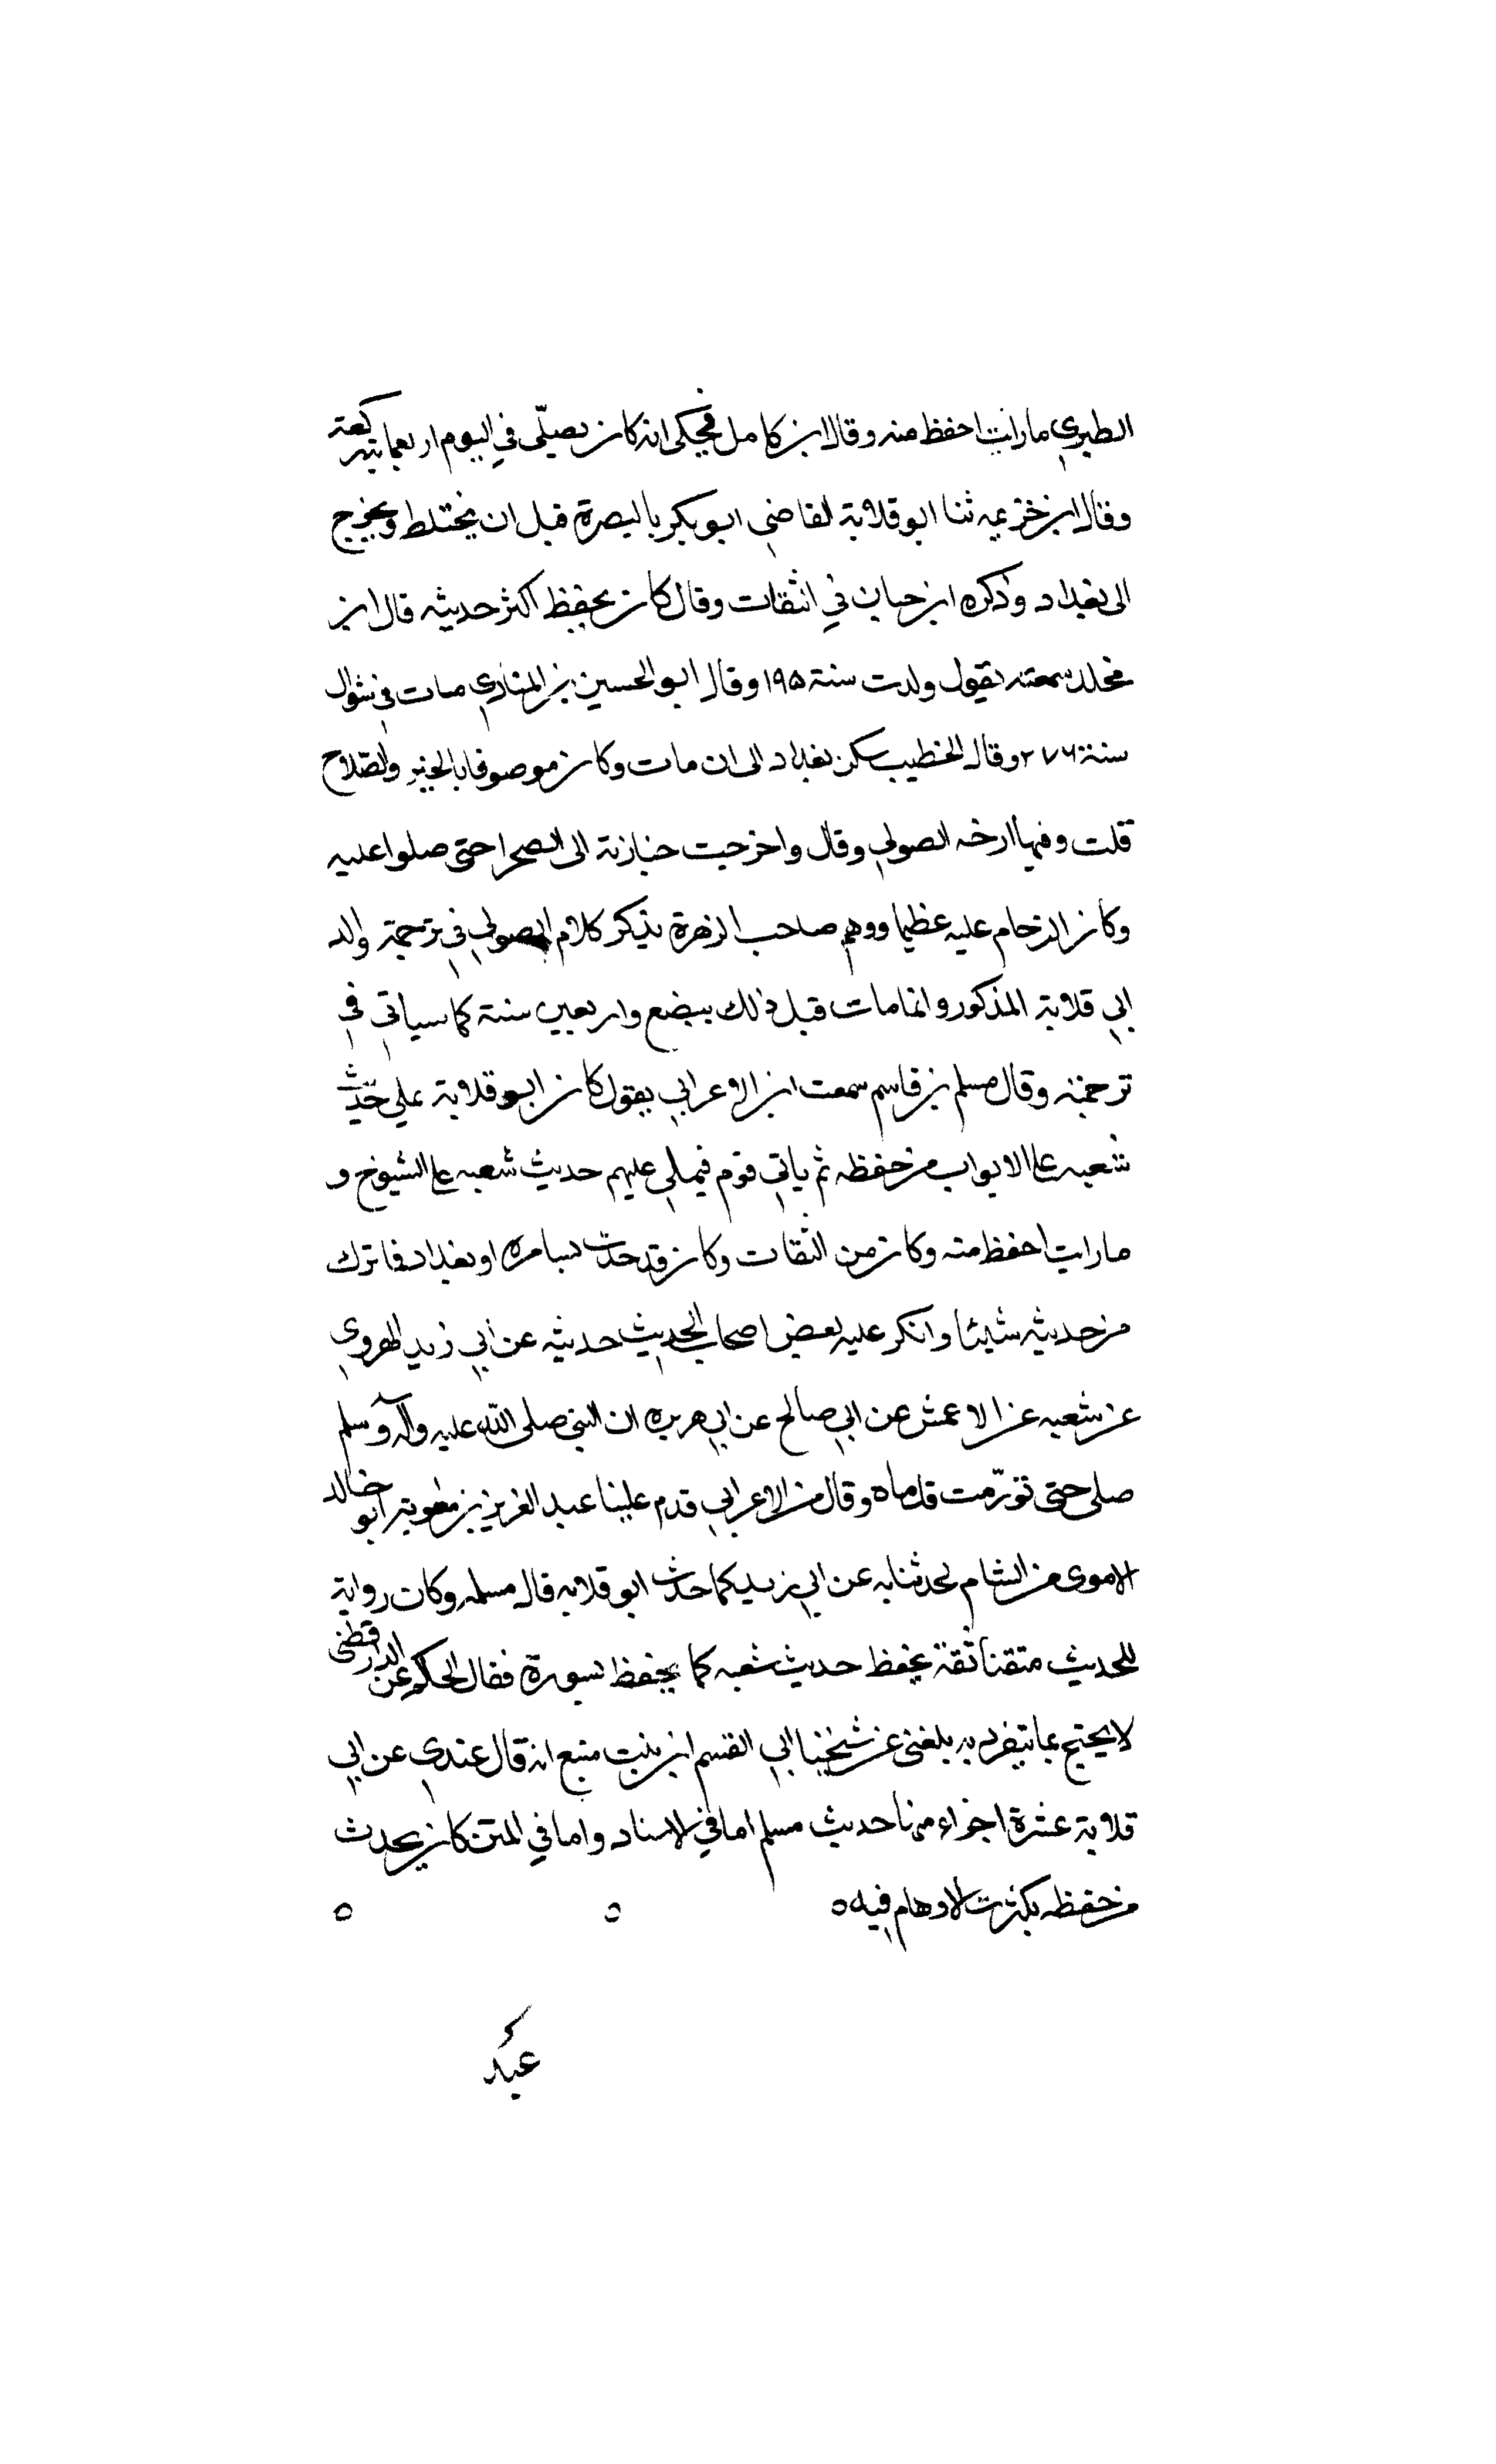 الطبري ما رايت احفظ منه وقال ابن كامل فحكى انه كان يصلّي في اليوم اربعماية ركعة
وقال ابن خزيمه ثنا ابو قلابة القاضي ابو بكر بالبصرة قبل ان يختلط ويخرج
الى بغداد وذكره ابن حبان في الثقات وقال كان يحفظ اكثر حديثه قال ابن
مخلد سمعته يقول ولدت سنة ١٩٥ وقال ابو الحسين بن المنادي مات في شوال
سنة ٢٧٦ وقال الخطيب سكن بغداد الى ان مات وكان موصوفا بالخير والصّلاح
قلت وفيها ارخه الصولي وقال واخرجت جنازته الى الصحرا حتى صلوا عليه
وكان الزحام عليه عظيما ووهم صاحب الزهرة بذكر كلام الصولي في ترجمة والد
ابي قلابة المذكور وانما مات قبل ذلك ببضع واربعين سنة كما سياتي في
ترجمته وقال مسلم بن قاسم سمعت ابن الاعرابي يقول كان ابو قلابة يملي حديث
شعبه على الابواب من حفظه ثم ياتي قوم فيملي عليهم حديث شعبه على الشيوخ و
ما رايت احفظ منه وكان من الثقات وكان قد حدّث بسامره او بغداد فما ترك
من حديثه شيئا وانكر عليه بعض اصحاب الحديث حديثه عن ابي زيد الهروي
عن شعبه عن الاعمش عن ابي صالح عن ابي هريره ان النبي صلى الله عليه وآله وسلم
صلى حتى تورّمت قدماه وقال ابن الاعرابي قدم علينا عبد العزيز بن معوية ابو خالد
الاموي من الشام فحدثنا به عن ابي زيد كما حدث ابو قلابه قال مسلمه وكان رواية
للحديث متقنا ثقة يحفظ حديث شعبه كما يحفظ السورة فقال الحاكم عن الدارقطنى
لا يحتج بما يتفرد به بلغني عن شيخنا ابي القسم ابن بنت منيع انه قال عندي عن ابي
قلابة عشرة اجزاء منها حديث مسلم اما في الاسناد واما في المتن كان يحدث
من حفظه بكثرت الاوهام فيه ٥ ٥ ٥
عبد